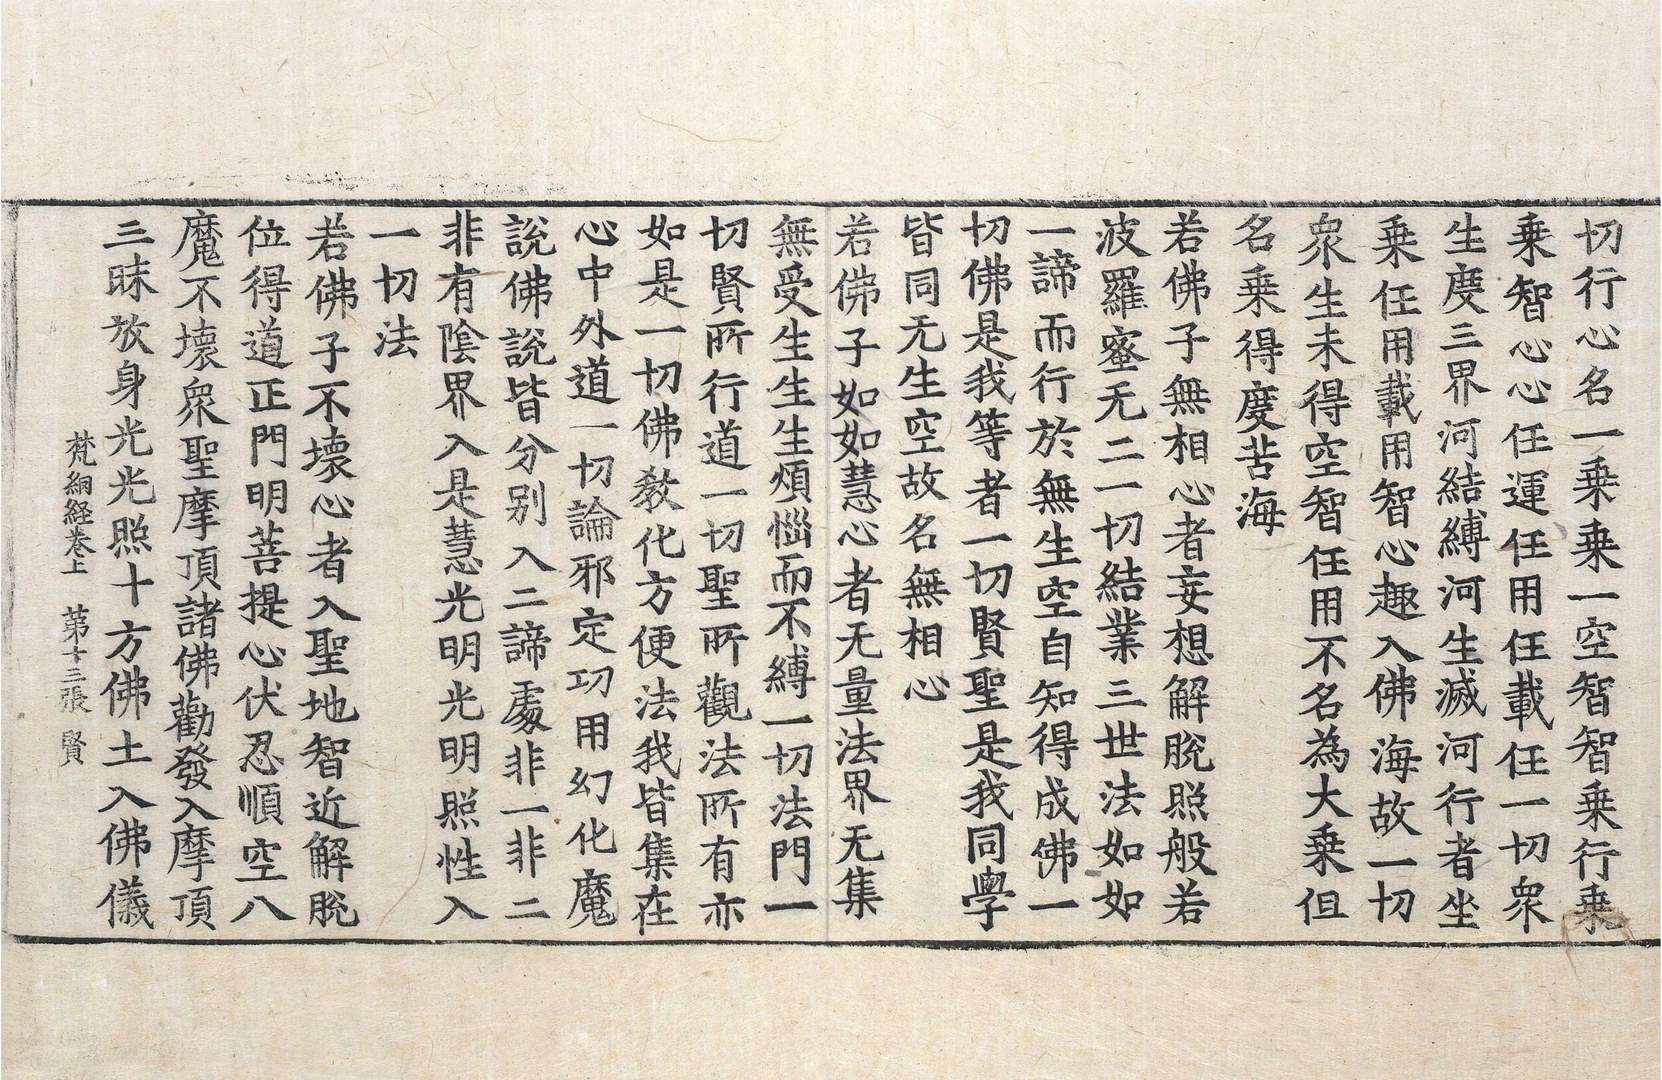 切行心名一乗乗一空智智乗行乗
乗智心心任運任用任載任一切衆
生度三界河結縛河生滅河行者坐
乗任用載用智心趣入佛海故一切
衆生未得空智任用不名為大乗但
名乗得度苦海
若佛子無相心者妄想解脫照般若
波羅蜜无二一切結業三世法如如
一諦而行於無生空自知得成佛一
切佛是我等者一切賢聖是我同學
皆同无生空故名無相心
若佛子如如慧心者无量法界无集
無受生生生煩惱而不縛一切法門一
切賢所行道一切聖所觀法所有亦
如是一切佛教化方便法我皆集在
心中外道一切論邪定功用幻化魔
說佛說皆分别入二諦處非一非二
非有陰界入是慧光明光明照性入
一切法
若佛子不壞心者入聖地智近解脫
位得道正門明菩提心伏忍順空八
魔不壞衆聖摩頂諸佛勸發入摩頂
三昧放身光光照十方佛土入佛儀
梵網経巻上　第十三張　賢